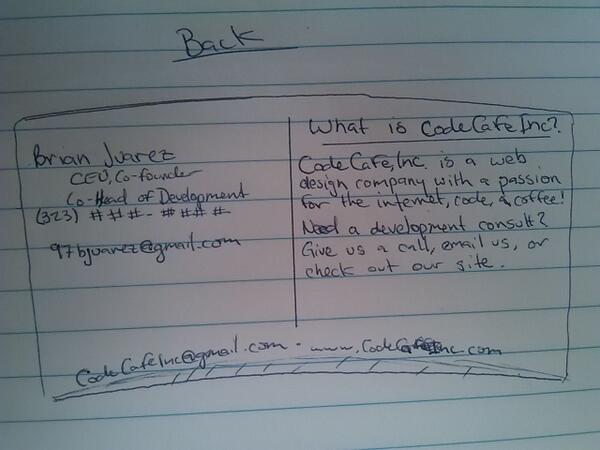 Back
Brian Juarez
CEO, Co-founder
Co-Head of Development
(323) ###-####
97bjuarez@gmail.com
What is CodeCafe Inc?
CodeCafe, Inc. is a web
design company with a passion
for the internet, code, & coffee!
Need a development consult?
Give us a call, email us, or
check out our site.
CodeCafeInc@gmail.com - www.CodeCafeInc.com